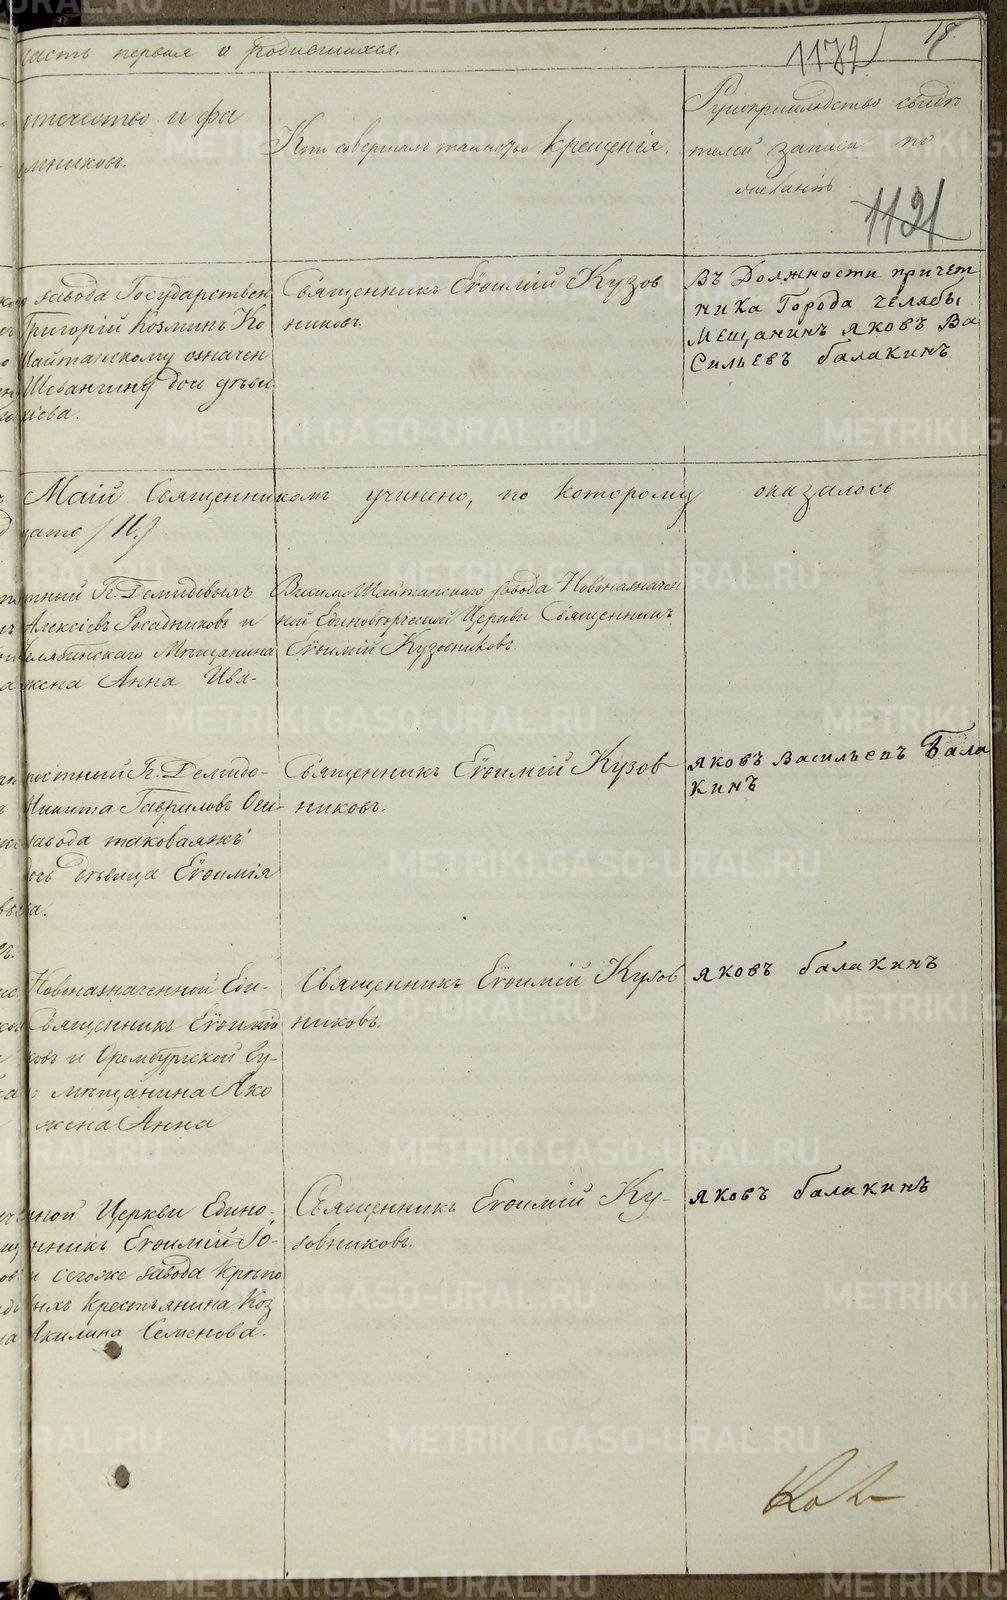 часть первая о родившихся.
1132
18
отечество и фа
мников.
Кто совершалъ таинство крещенія.
Рукоприкладство свидѣ
телей записи по
желанію
1121
завода Государствен
Григорій Козминъ Ко
Шайтанскому означен
Шевангину доч дѣви
сіева.
Священникъ Евѳимій Кузов
никовъ.
Въ Должности причет
ника Города челябы
Мещанинъ яковъ Ва
сильевъ балакинъ
Маій Священникомъ учинено, по которому оказалось
цать /11./
тный Г. Демидовыхъ
Алексіевъ Росадниковъ и
елябинскаго Мѣщанина
жена Анна Ива-
Висимо Шайтанскаго завода Новоназначен
ной Единоверческой Церкви Священникъ
Евѳимій Кузовниковъ.
постный Г. Демидо-
Никита Гавриловъ Оси-
завода таковаяжъ
дочь дѣвица Евѳимія
ва.
Священникъ Евѳимій Кузов
никовъ.
яковъ васильевъ Бала
кинъ
Новоназначенной Еди-
Священникъ Евѳимій
ковъ и Оренбургской Гу-
мѣщанина Яко
жена Анна
Священникъ Евѳимій Кузов
никовъ.
яковъ балакинъ
нной Церкви Едино-
нникъ Евѳимій
и сегоже завода Крѣпо
ыхъ крестьянина Коз
Акилина Семенова.
Священникъ Евѳимій Ку-
зовниковъ.
яковъ балакинъ
METRIKI.GASO-URAL.RU